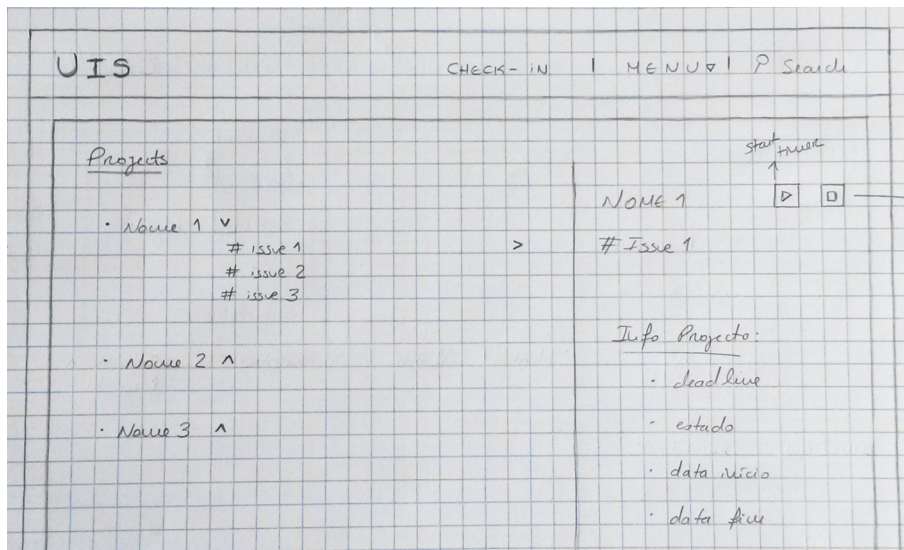 UIS
CHECK-IN | MENU ▿ | Search
Projects
start timer
• Nome 1 v
# issue 1
# issue 2
# issue 3
>
• Nome 2 ^
• Nome 3 ^
NOME 1
# Issue 1
Info Projecto:
• deadline
• estado
• data início
• data fim